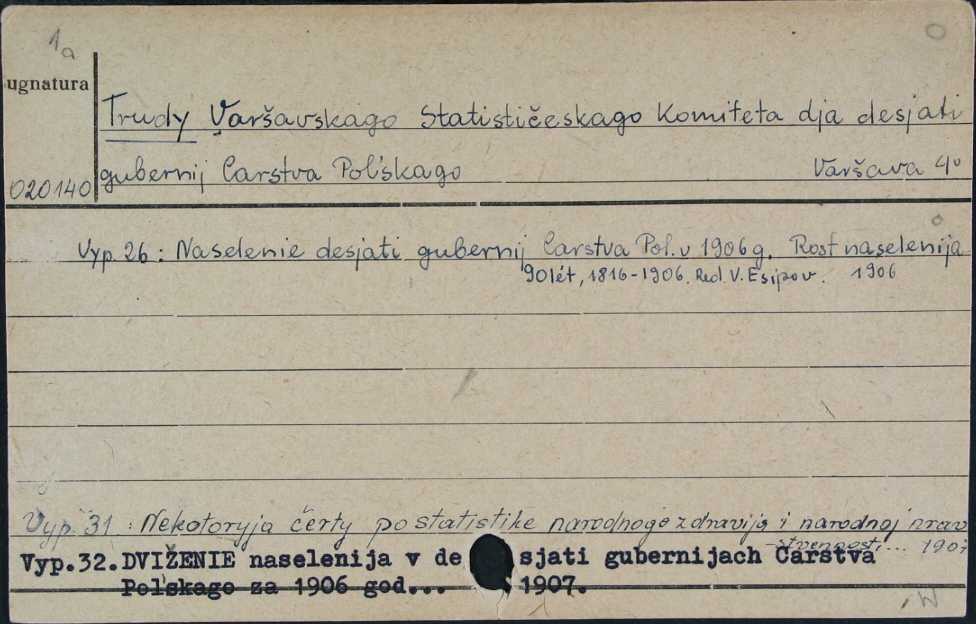 1a
ugnatura
Trudy Varšavskago Statističeskago Komiteta dja desjati
020140 gubernij Carstva Pol'skago Varšava 4°
Vyp. 26 : Naselenie desjati gubernij Carstva Pol. v 1906 g. Rost naselenija
90 lét, 1816-1906. Red. V. Esipov. 1906
Vyp. 31 : Nekotoryja čerty po statistike narodnogo zdravija i narodnoj nrav
stvennosti... 1907
Vyp.32. DVIŽENIE naselenija v de sjati gubernijach Carstva
Polskago za 1906 god... 1907.
W